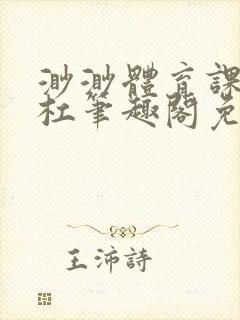 渺渺體育課
杜筆趣閣免
王沛詩